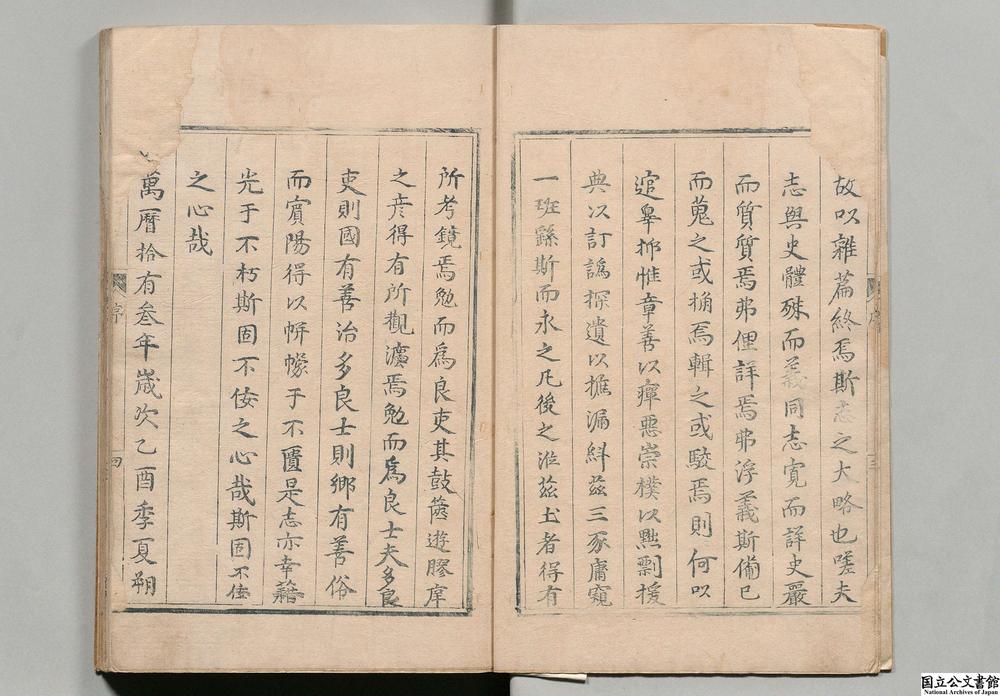 故以雜篇終焉斯志之大略也嗟夫
志與史體殊而義同志寛而詳史嚴
而質質焉弗俚詳焉弗浮義斯備已
而蒐之或桷焉輯之或駁焉則何以
逭辜抑惟章善以癉惡崇樸以黜剽援
典以訂譌探遺以摭漏糾茲三豕庸窺
一班繇斯而永之凡後之涖茲土者得有
所考鏡焉勉而爲良吏其鼓篋遊膠庠
之彦得有所觀灋焉勉而爲良士夫多良
吏則國有善治多良士則鄉有善俗
而賓陽得以帡幪于不匱是志亦幸籍
光于不朽斯固不佞之心哉斯固不佞
之心哉
萬曆拾有叁年歲次乙酉季夏朔
序
三
序
四
国立公文書館
National Archives of Japan